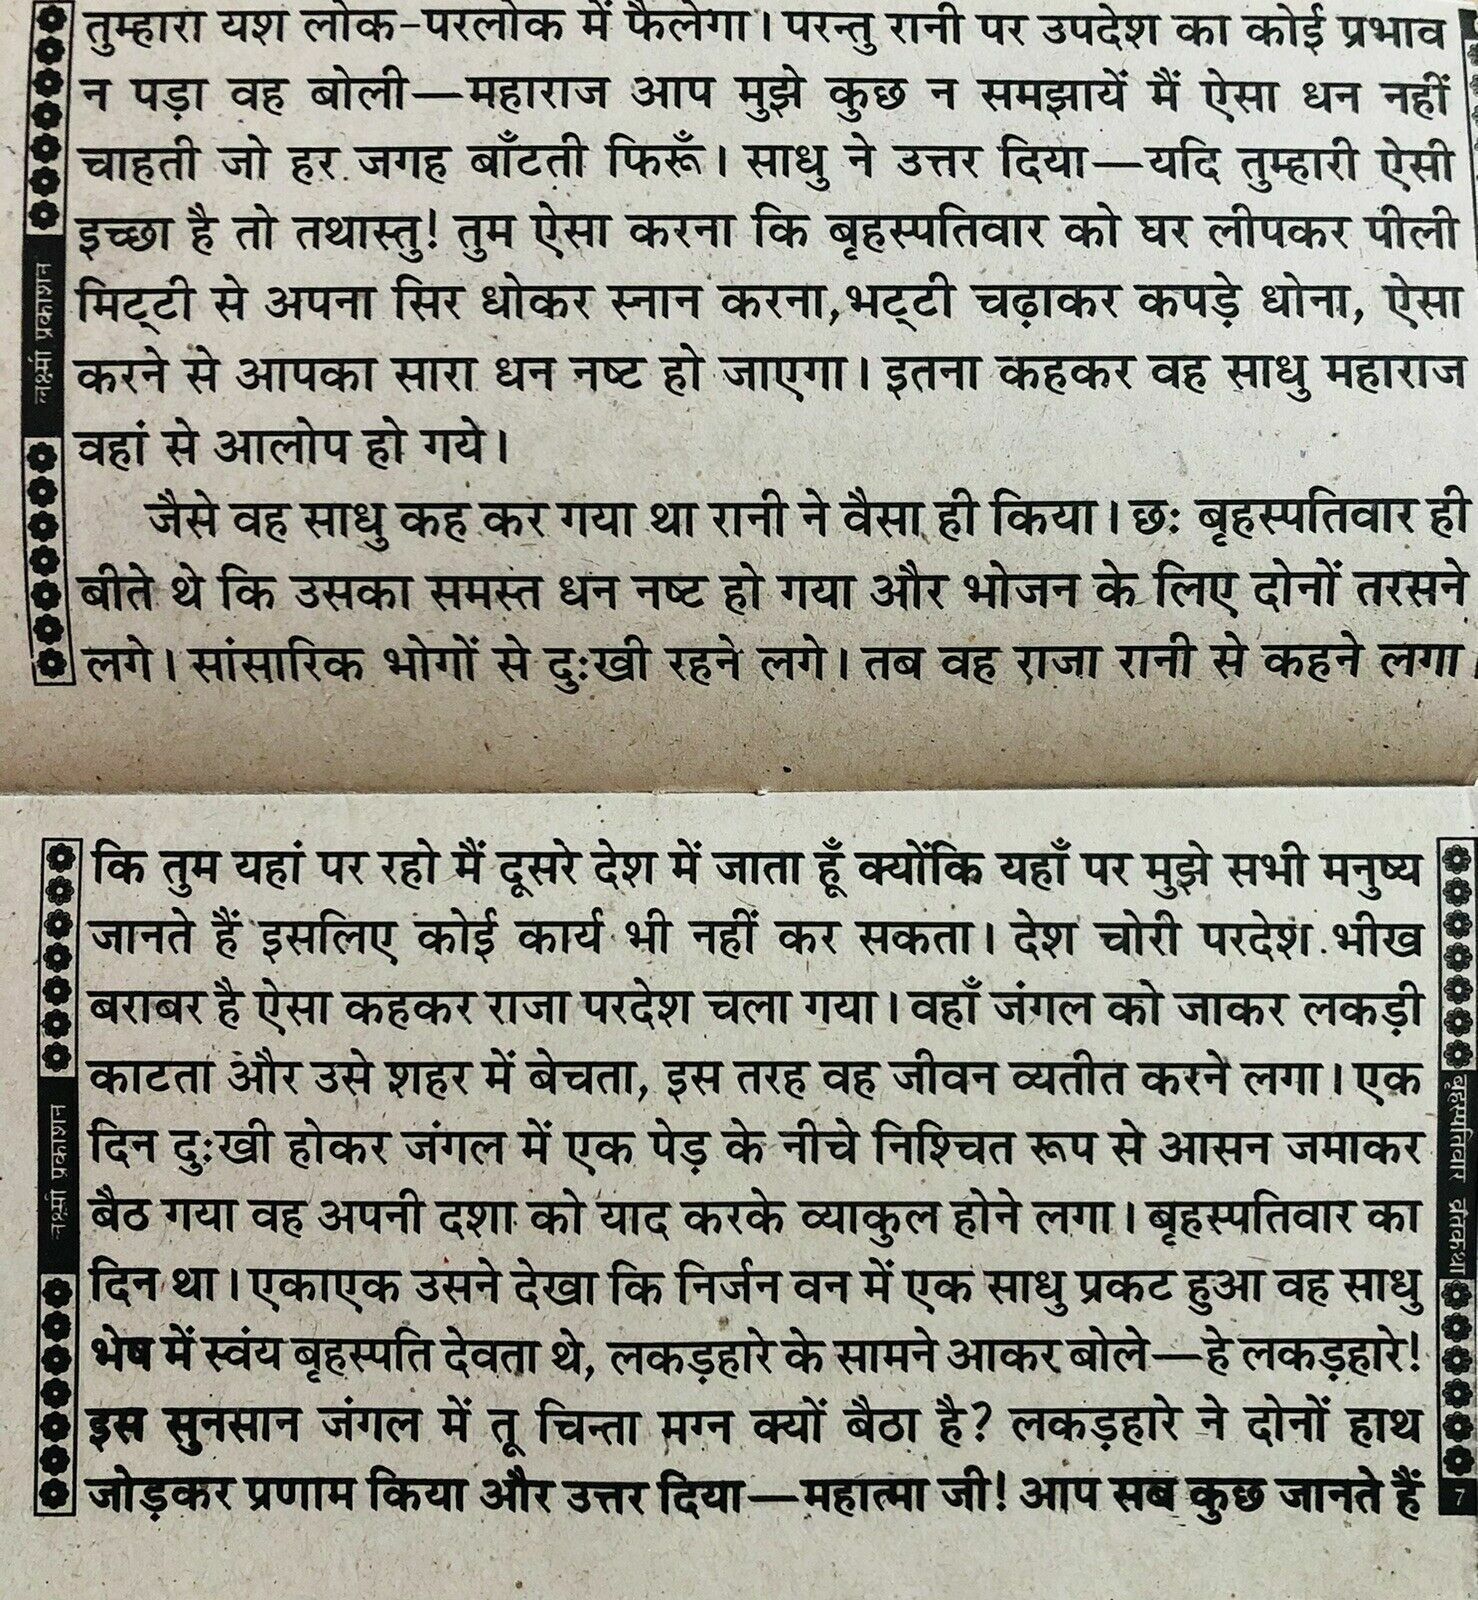 तुम्हारा यश लोक-परलोक में फैलेगा। परन्तु रानी पर उपदेश का कोई प्रभाव
न पड़ा वह बोली—महाराज आप मुझे कुछ न समझायें मैं ऐसा धन नहीं
चाहती जो हर जगह बाँटती फिरूँ। साधु ने उत्तर दिया—यदि तुम्हारी ऐसी
इच्छा है तो तथास्तु! तुम ऐसा करना कि बृहस्पतिवार को घर लीपकर पीली
मिट्टी से अपना सिर धोकर स्नान करना, भट्टी चढ़ाकर कपड़े धोना, ऐसा
करने से आपका सारा धन नष्ट हो जाएगा। इतना कहकर वह साधु महाराज
वहां से आलोप हो गये।
जैसे वह साधु कह कर गया था रानी ने वैसा ही किया। छः बृहस्पतिवार ही
बीते थे कि उसका समस्त धन नष्ट हो गया और भोजन के लिए दोनों तरसने
लगे। सांसारिक भोगों से दुःखी रहने लगे। तब वह राजा रानी से कहने लगा
लक्ष्मी प्रकाशन
कि तुम यहां पर रहो मैं दूसरे देश में जाता हूँ क्योंकि यहाँ पर मुझे सभी मनुष्य
जानते हैं इसलिए कोई कार्य भी नहीं कर सकता। देश चोरी परदेश भीख
बराबर है ऐसा कहकर राजा परदेश चला गया। वहाँ जंगल को जाकर लकड़ी
काटता और उसे शहर में बेचता, इस तरह वह जीवन व्यतीत करने लगा। एक
दिन दुःखी होकर जंगल में एक पेड़ के नीचे निश्चित रूप से आसन जमाकर
बैठ गया वह अपनी दशा को याद करके व्याकुल होने लगा। बृहस्पतिवार का
दिन था। एकाएक उसने देखा कि निर्जन वन में एक साधु प्रकट हुआ वह साधु
भेष में स्वंय बृहस्पति देवता थे, लकड़हारे के सामने आकर बोले—हे लकड़हारे!
इस सुनसान जंगल में तू चिन्ता मग्न क्यों बैठा है? लकड़हारे ने दोनों हाथ
जोड़कर प्रणाम किया और उत्तर दिया—महात्मा जी! आप सब कुछ जानते हैं
लक्ष्मी प्रकाशन
बृहस्पतिवार व्रतकथा
7